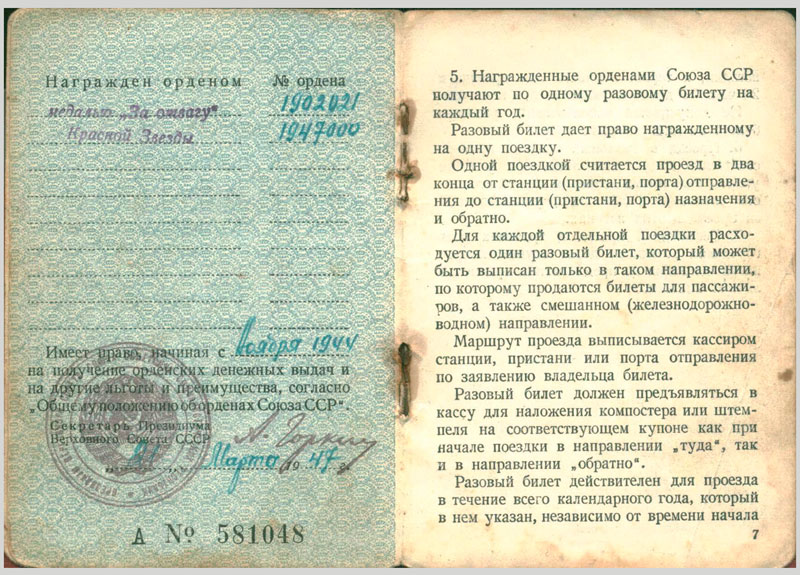 Награжден орденом № ордена
медалью „За отвагу“ 1902021
Красной Звезды 1947000
Имеет право, начиная с ноября 1944
на получение орденских денежных выдач и
на другие льготы и преимущества, согласно
„Общему положению об орденах Союза ССР“.
Секретарь Президиума
Верховного Совета СССР А. Горкин
21 „ Марта 1947 г.
А № 581048
5. Награжденные орденами Союза ССР
получают по одному разовому билету на
каждый год.
Разовый билет дает право награжденному
на одну поездку.
Одной поездкой считается проезд в два
конца от станции (пристани, порта) отправле-
ния до станции (пристани, порта) назначения
и обратно.
Для каждой отдельной поездки расхо-
дуется один разовый билет, который может
быть выписан только в таком направлении,
по которому продаются билеты для пассажи-
ров, а также смешанном (железнодорожно-
водном) направлении.
Маршрут проезда выписывается кассиром
станции, пристани или порта отправления
по заявлению владельца билета.
Разовый билет должен предъявляться в
кассу для наложения компостера или штем-
пеля на соответствующем купоне как при
начале поездки в направлении „туда“, так
и в направлении „обратно“.
Разовый билет действителен для проезда
в течение всего календарного года, который
в нем указан, независимо от времени начала
7